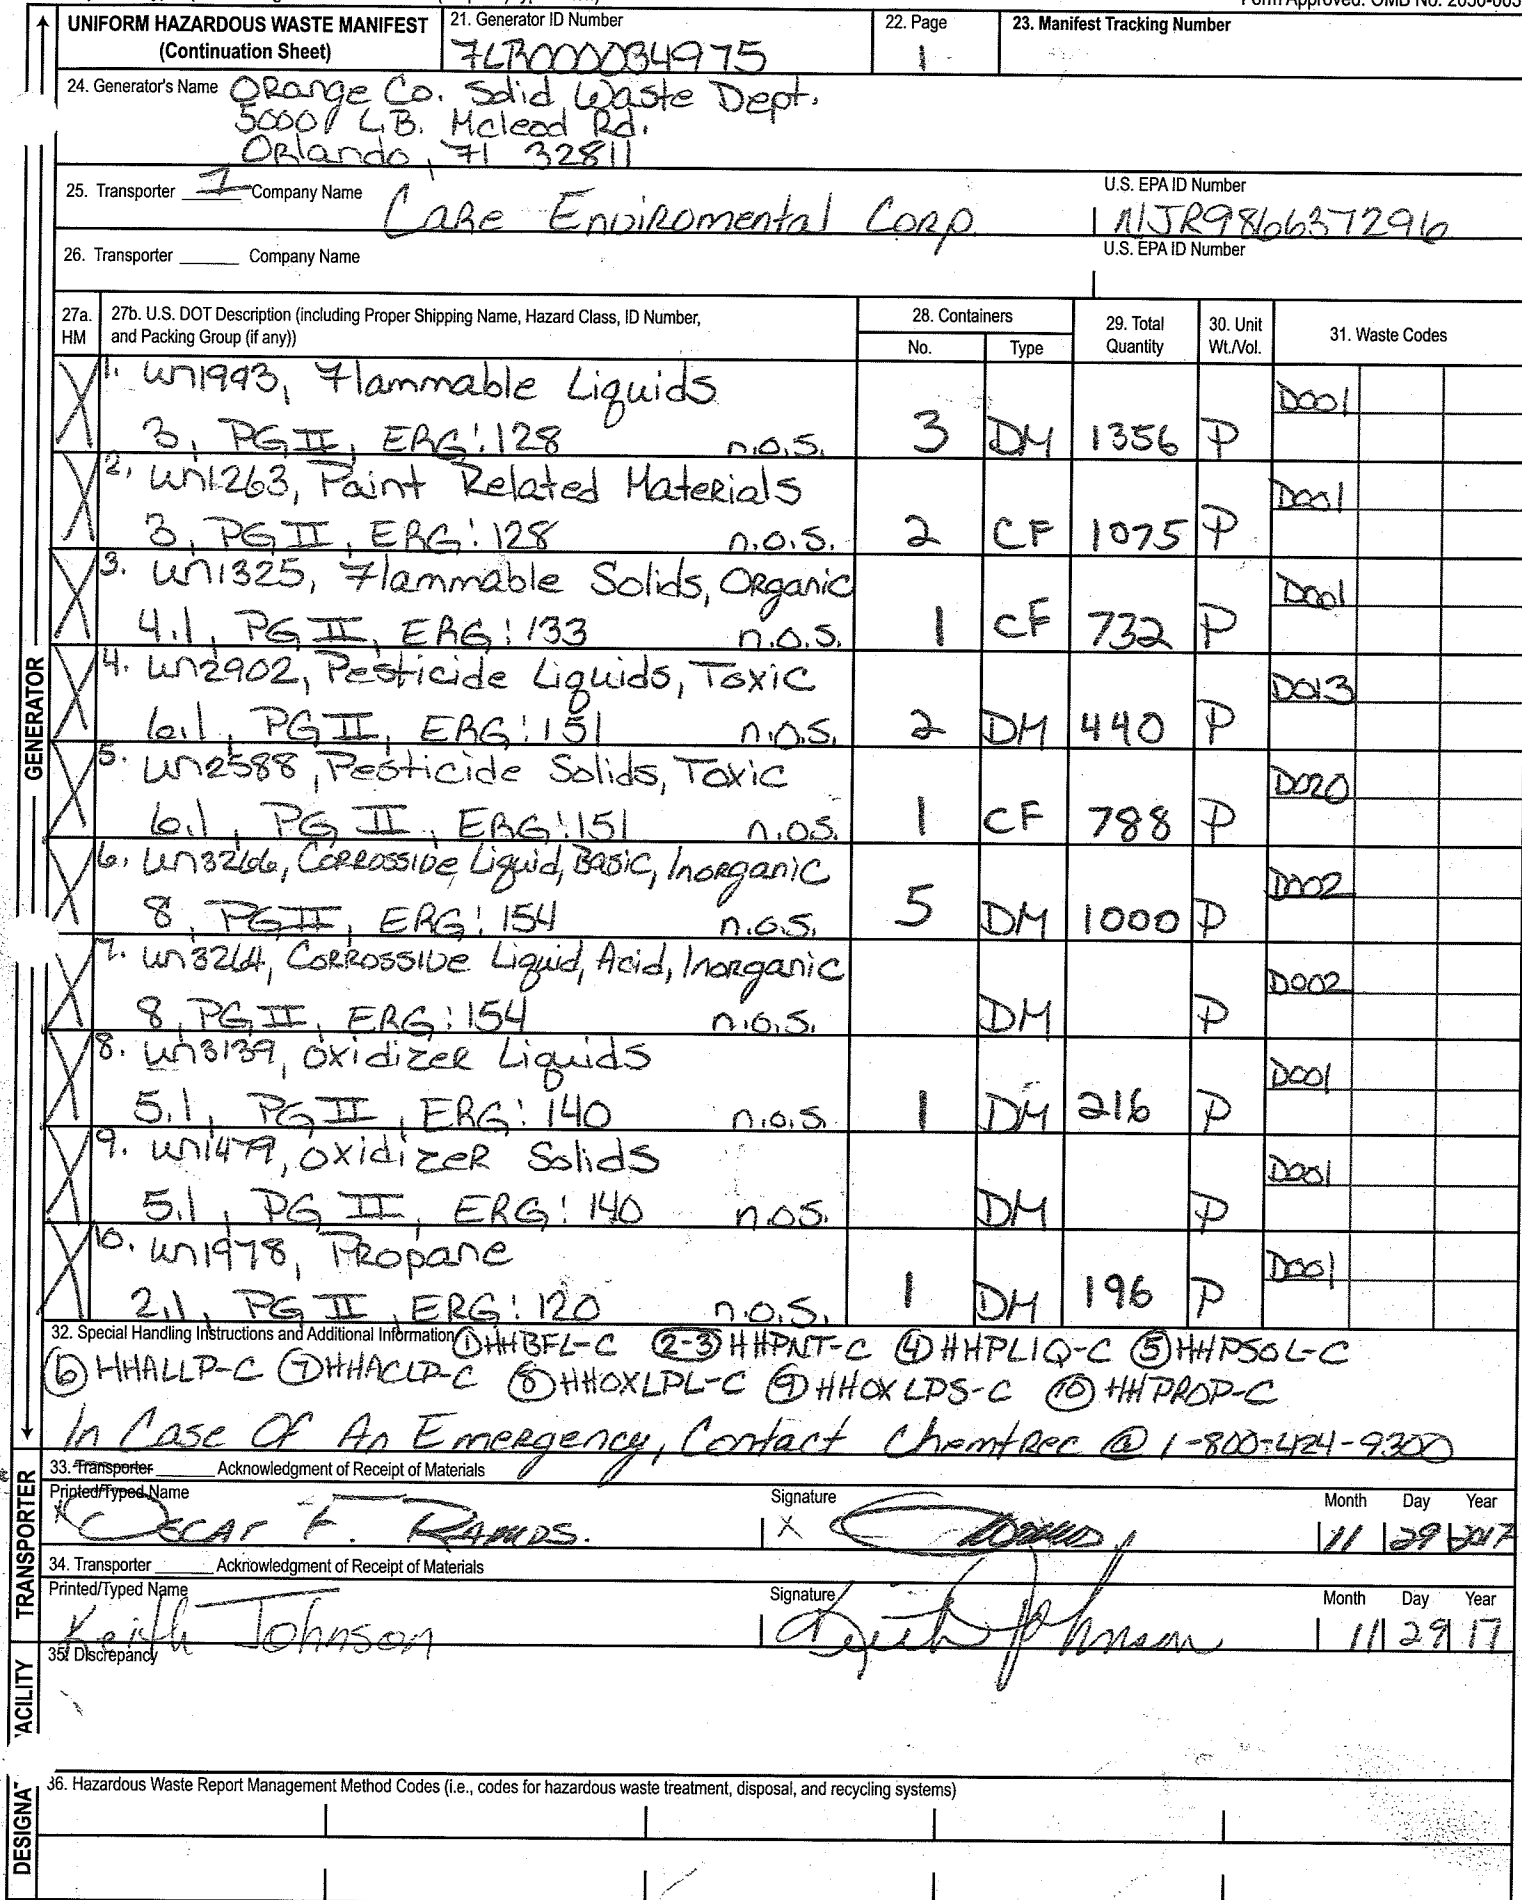 UNIFORM HAZARDOUS WASTE MANIFEST
(Continuation Sheet)
21. Generator ID Number
7LR000034975
22. Page
1
23. Manifest Tracking Number
24. Generator's Name Orange Co. Solid Waste Dept.
5000 L.B. Mcleod Rd.
Orlando, 7l 32811
25. Transporter 1 Company Name Care Enviromental Corp
U.S. EPA ID Number
NJR986637296
26. Transporter ______ Company Name
U.S. EPA ID Number
27a. HM
27b. U.S. DOT Description (including Proper Shipping Name, Hazard Class, ID Number, and Packing Group (if any))
28. Containers
No. Type
29. Total Quantity
30. Unit Wt./Vol.
31. Waste Codes
X 1. un1993, Flammable Liquids
3, PG II, ERG: 128 n.o.s. 3 DM 1356 P D001
X 2. un1263, Paint Related Materials
3, PG II, ERG: 128 n.o.s. 2 CF 1075 P D001
X 3. un1325, Flammable Solids, Organic
4.1, PG II, ERG: 133 n.o.s. 1 CF 732 P D001
X 4. un2902, Pesticide Liquids, Toxic
6.1, PG II, ERG: 151 n.o.s. 2 DM 440 P D013
X 5. un2588, Pesticide Solids, Toxic
6.1, PG II, ERG: 151 n.o.s. 1 CF 788 P D020
X 6. un3266, Corrossive Liquid, Basic, Inorganic
8, PG II, ERG: 154 n.o.s. 5 DM 1000 P D002
X 7. un3264, Corrossive Liquid, Acid, Inorganic
8, PG II, ERG: 154 n.o.s. DM P D002
X 8. un3139, Oxidizer Liquids
5.1, PG II, ERG: 140 n.o.s. 1 DM 216 P D001
X 9. un1479, oxidizer Solids
5.1, PG II, ERG: 140 n.o.s. DM P D001
X 10. un1978, Propane
2.1, PG II, ERG: 120 n.o.s. 1 DM 196 P D001
32. Special Handling Instructions and Additional Information ① HHBFL-C ②-③ HHPNT-C ④ HHPLIQ-C ⑤ HHPSOL-C
⑥ HHALLP-C ⑦ HHACLP-C ⑧ HHOXLPL-C ⑨ HHOXLPS-C ⑩ HHPROP-C
In Case Of An Emergency, Contact Chemtrec @ 1-800-424-9300
33. Transporter ______ Acknowledgment of Receipt of Materials
Printed/Typed Name
Signature
Month Day Year
X Oscar F. Ramos. X 11 29 2017
34. Transporter ______ Acknowledgment of Receipt of Materials
Printed/Typed Name
Signature
Month Day Year
Keith Johnson Keith Johnson 11 29 17
35. Discrepancy
36. Hazardous Waste Report Management Method Codes (i.e., codes for hazardous waste treatment, disposal, and recycling systems)
GENERATOR
TRANSPORTER